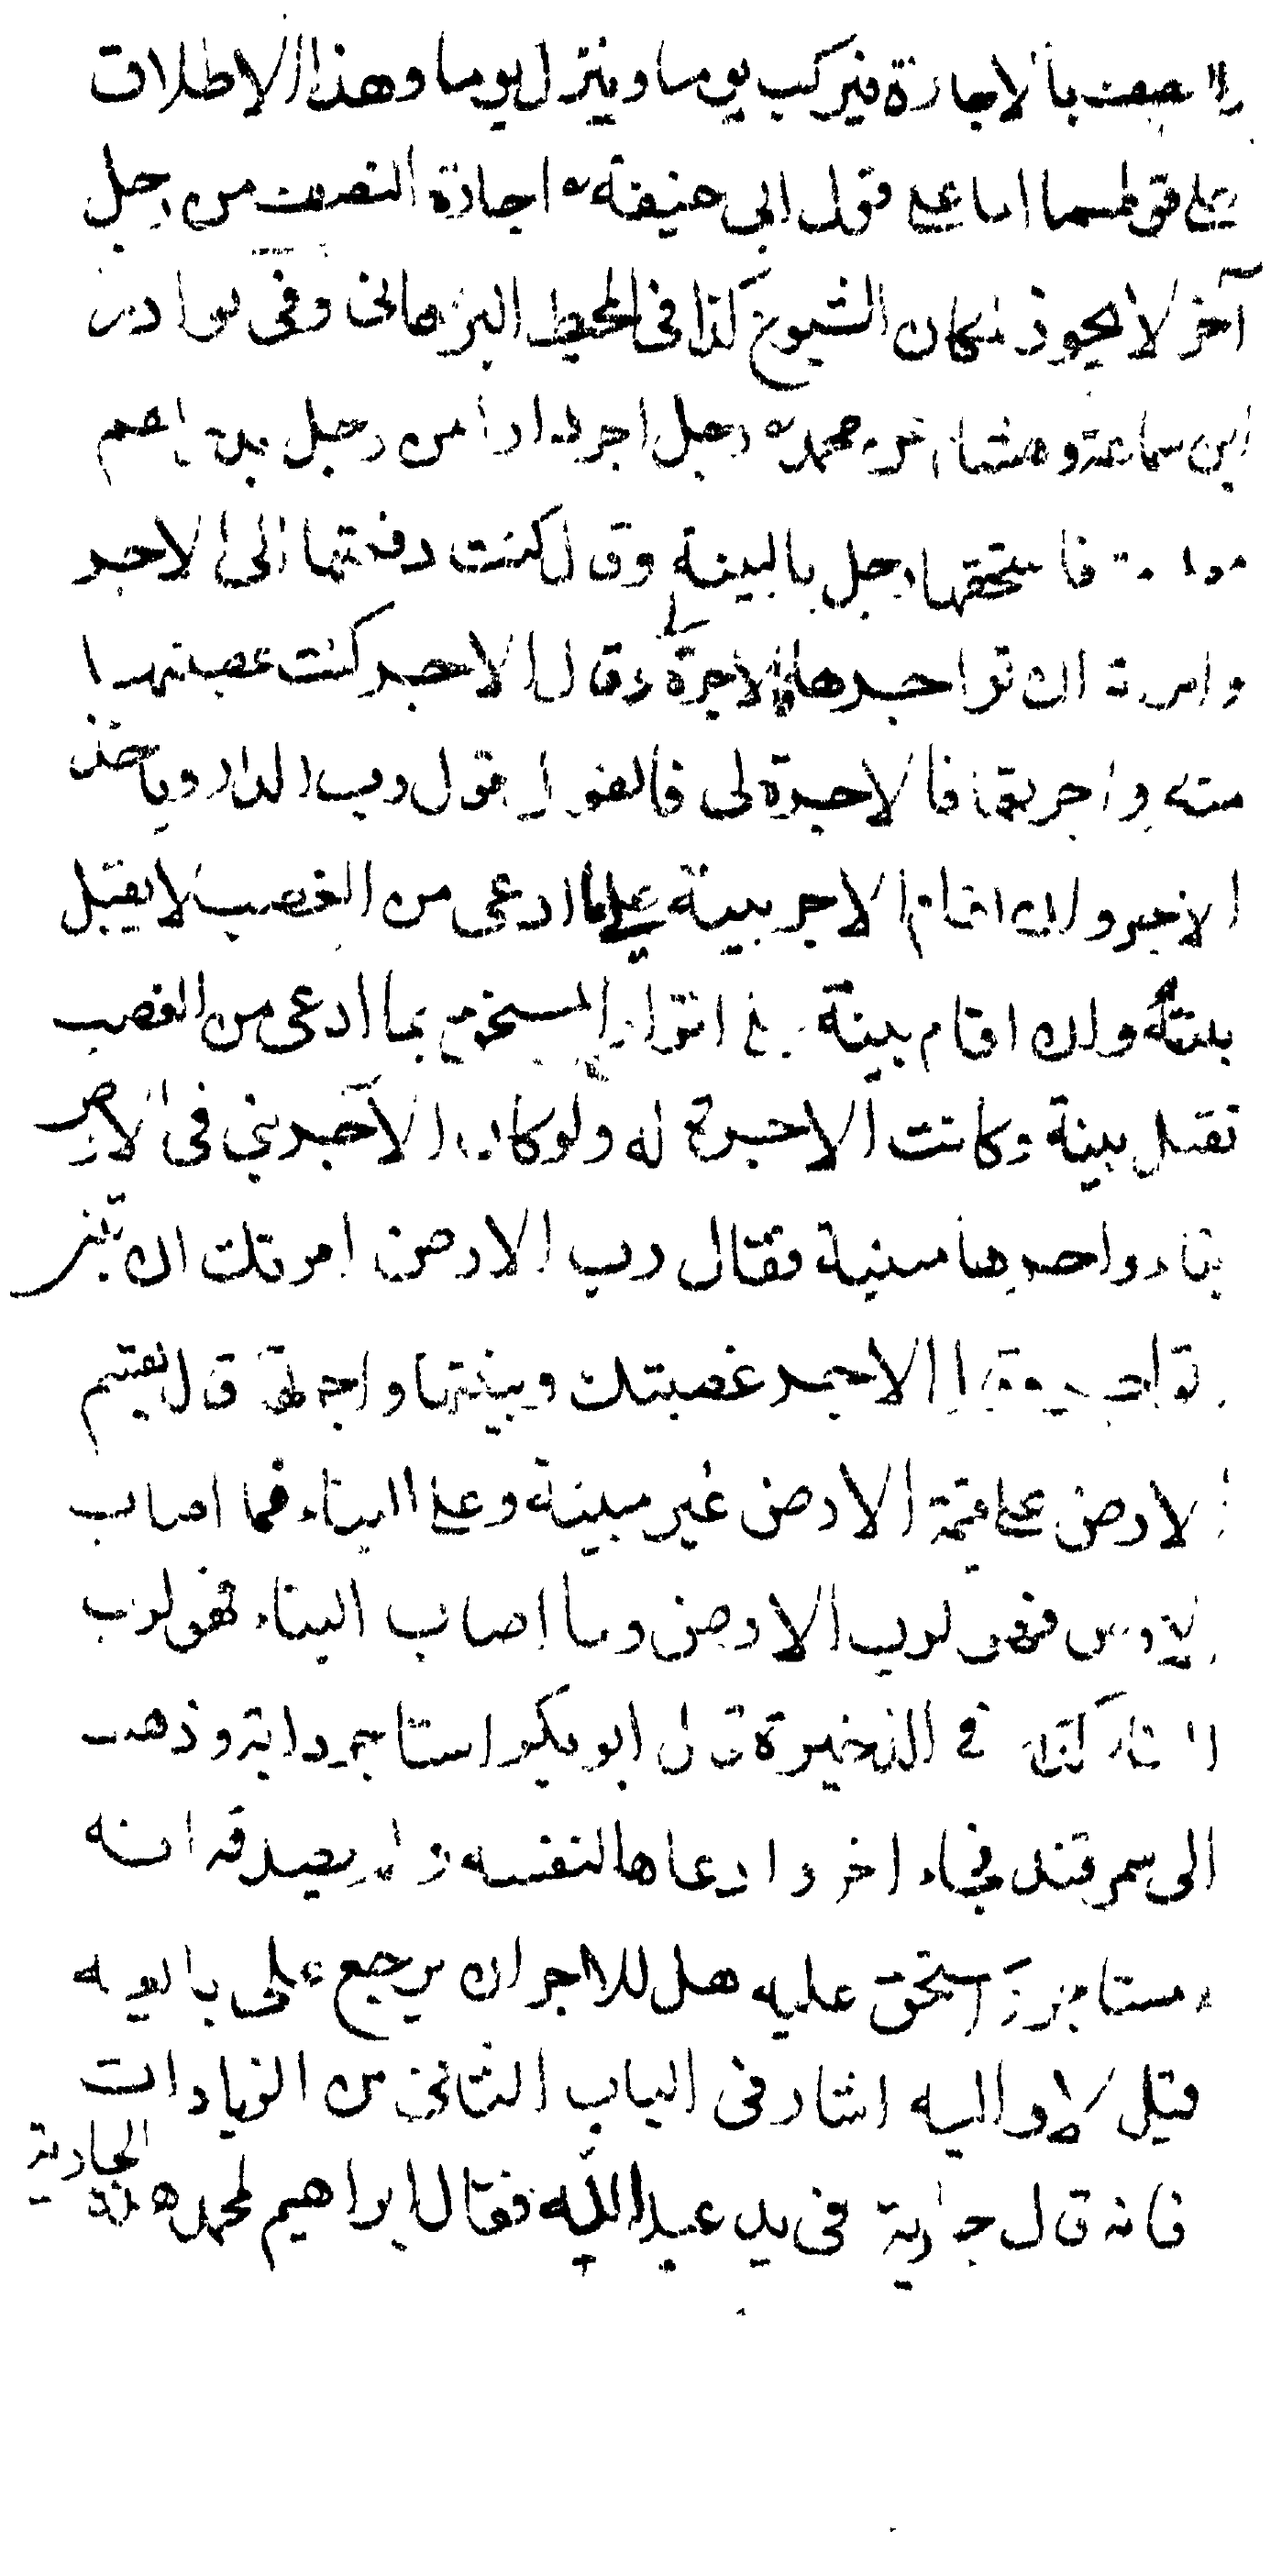 والنصف بالاجارة فيركب يوما وينزل يوما وهذا الاطلاق
على قولهما اما على قول ابى حنيفة اجارة النصف من رجل
آخر لا يجوز لمكان الشيوع كذا فى المحيط البرهانى وفى نوادر
ابن سماعة وهشام عن محمد رجل اجر دارا من رجل
فاستحقها رجل بالبينة وقال كنت دفعتها الى الاجر
وامرته ان تواجرها لى الاجرة وقال الاجر كنت غصبتها
منه واجرتها فالاجرة لى فالقول قول رب الدار وياخذ
الاجر وان اقام الاجر بينة على ما ادعى من الغصب لا يقبل
بينته وان اقام بينة على اقرار المستحق بما ادعى من الغصب
تقبل بينة وكانت الاجرة له ولو كان الآجر بنى فى الارض
بناء واجرها مبنية فقال رب الارض امرتك ان تبنى
تواجر وقال الاجر غصبتك وبنيتها واجرتها قال يقسم
الاجر على قيمة الارض غير مبينة وعلى البناء فما اصاب
الارض فهو لرب الارض وما اصاب البناء فهو لرب
البناء كذا فى الذخيرة قال ابو بكر استاجر دابة وذهب
الى سمرقند فجاء اخر وادعاها لنفسه ولم يصدقه انه
مستاجر واستحق عليه هل للاجر ان يرجع على بايعه
قيل لا واليه اشار فى الباب الثانى من الزيادات
فانه قال جارية فى يد عبد الله فقال ابراهيم لمحمد هذه الجارية